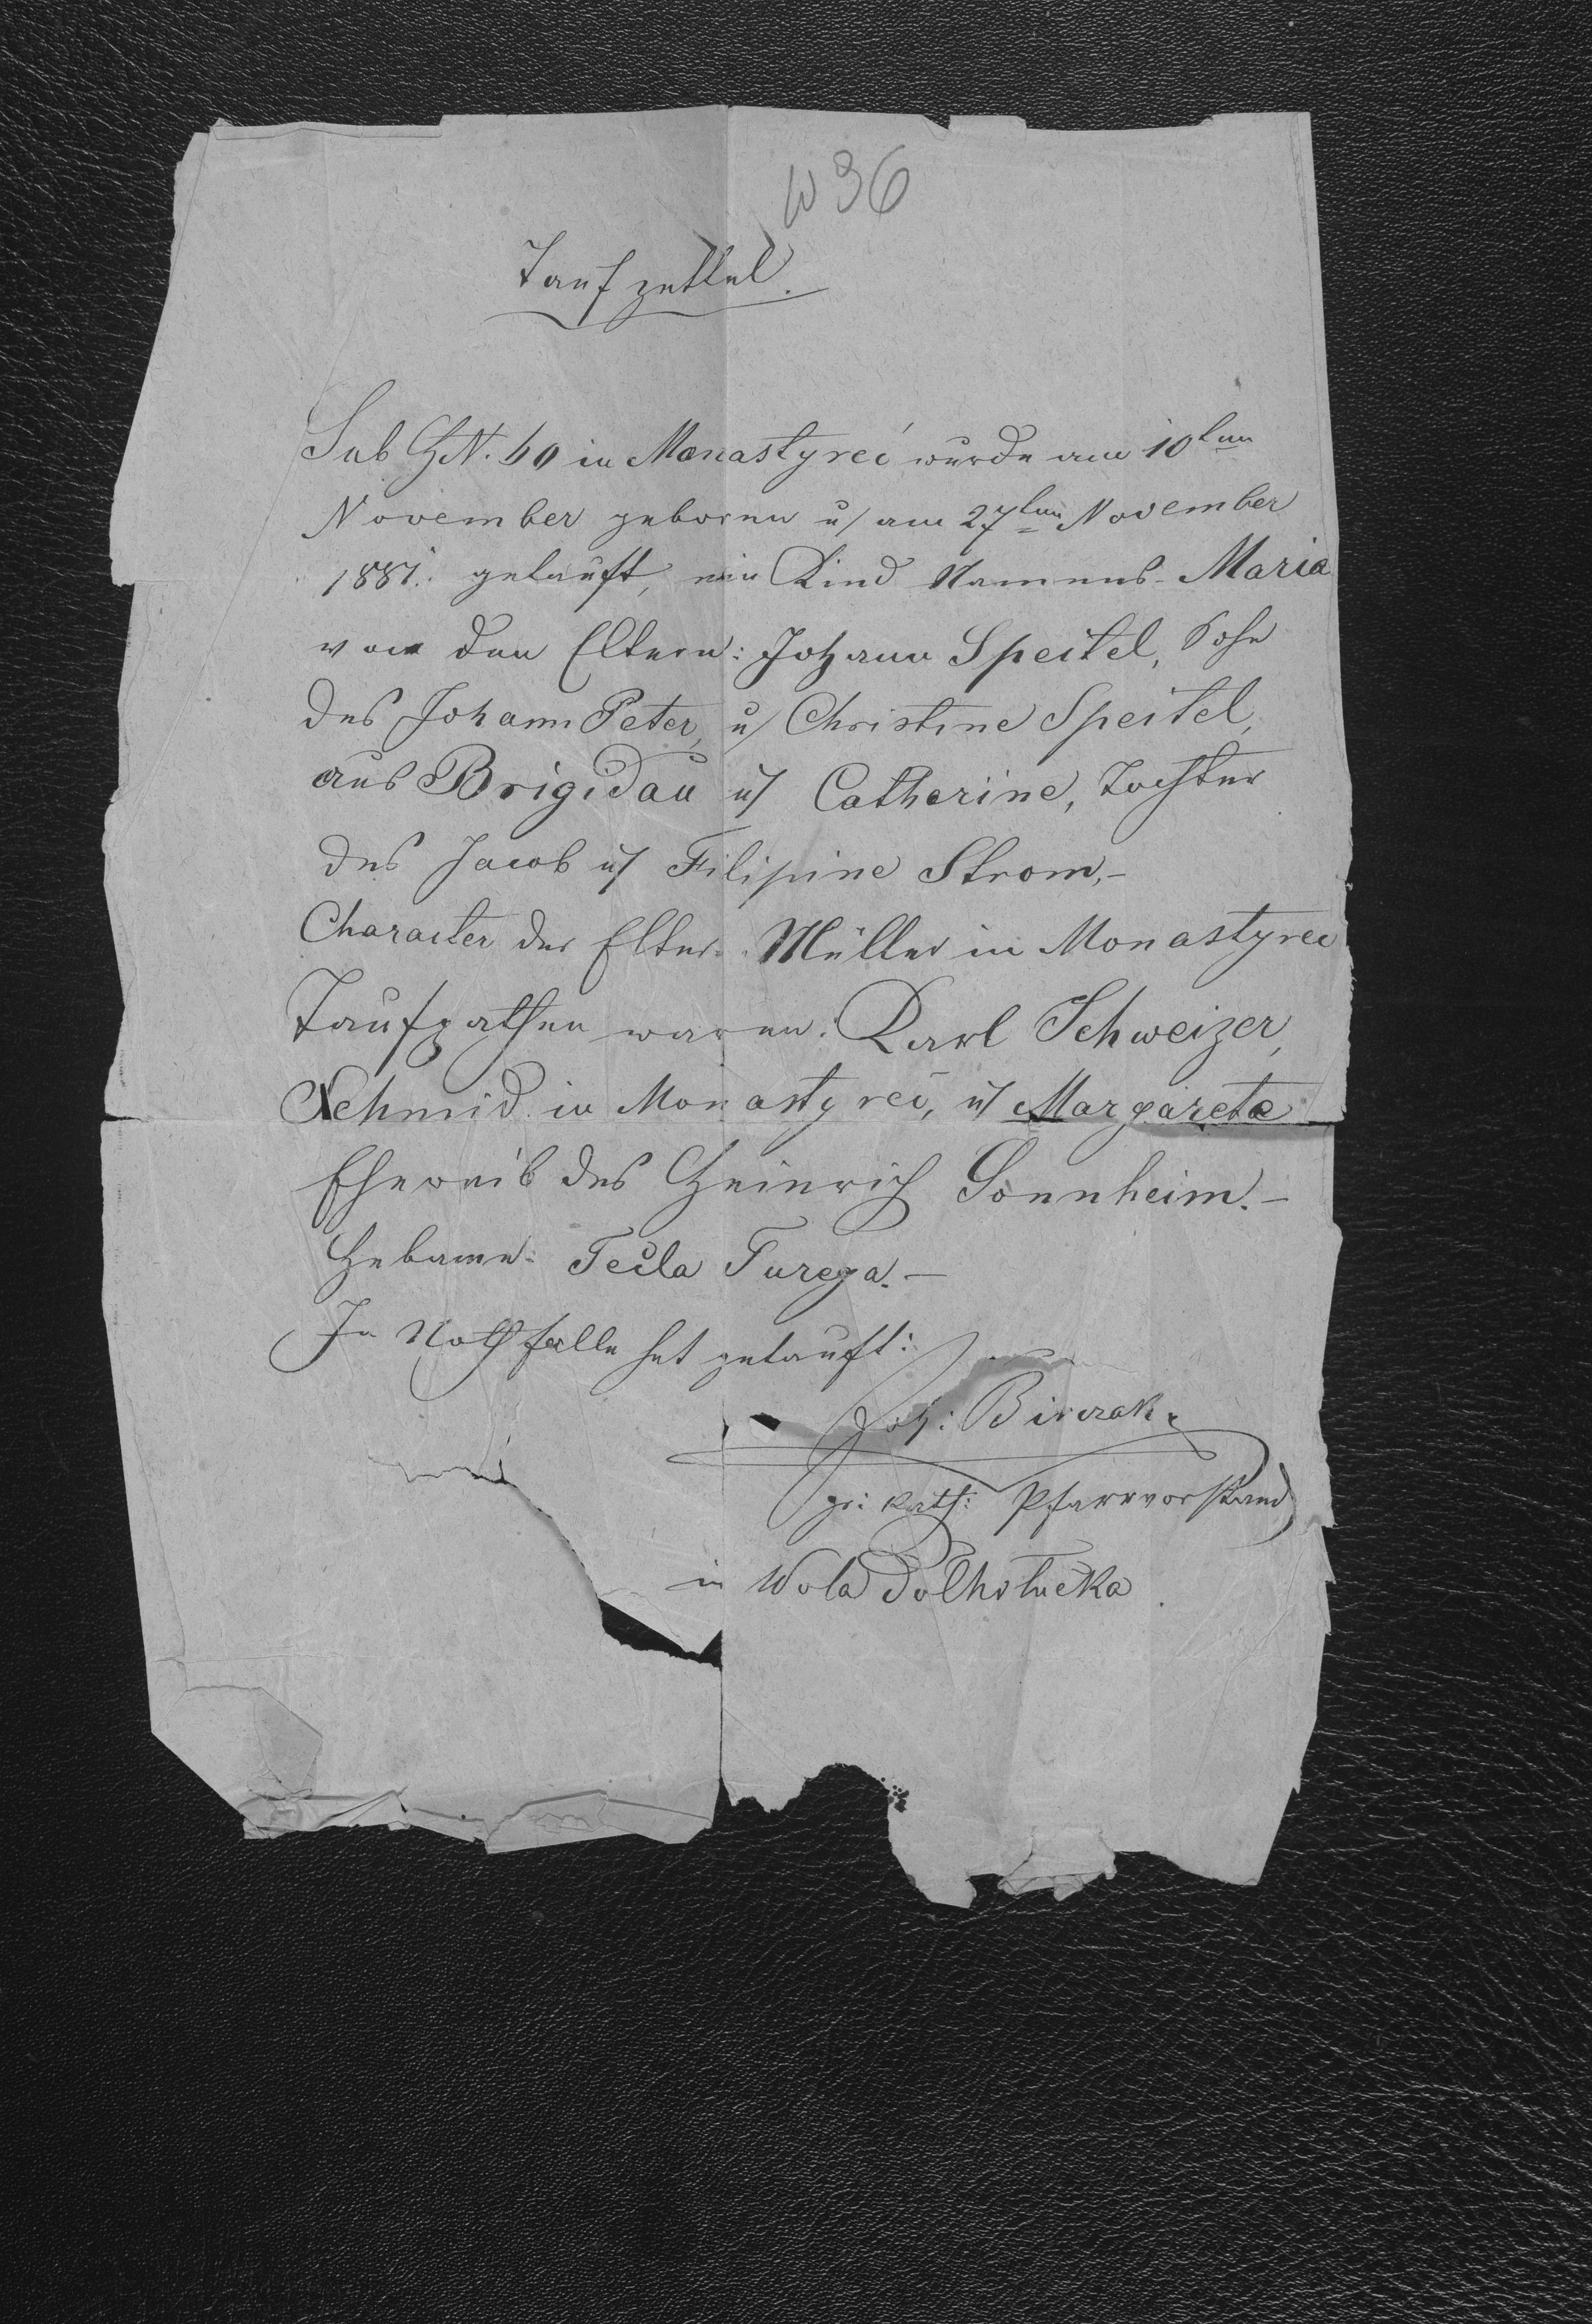 W 36
Taufzettel.
Sub HN. 60 in Monastyreć wurde am 10ten
November geboren u/ am 27ten November
1881. getauft, ein Kind Namens Maria
von den Eltern: Johann Speitel, Sohn
des Johann Peter, u/ Christine Speitel,
aus Brigidau u/ Catherine, Tochter
des Jacob u/ Filipine Strom,-
Character der Elter. Müller in Monastyrec
Taufpathen waren: Karl Schweizer,
Schmid in Monastyreć, u/ Margareta
Eheweib des Heinrich Sonnheim.-
Hebame: Tecla Turega.-
In Nothfalle hat getauft:
Joh: Birczak
gr: kath: Pfarrvorstand
in Wola Dołhołucka